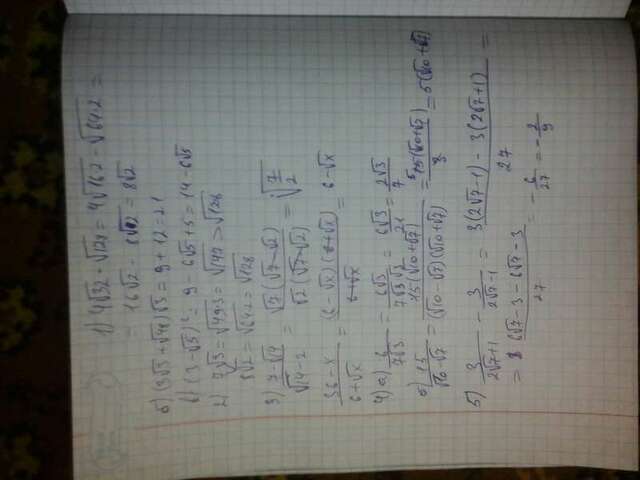 1) 4√32 - √128 = 4√16·2 - √64·2 =
= 16√2 - 8√2 = 8√2
б) (3√3 + √48)√3 = 9 + 12 = 21
в) (3 - √5)² = 9 - 6√5 + 5 = 14 - 6√5
2) 7√3 = √49·3 = √147 > √128
8√2 = √64·2 = √128
3) (7 - √14)/(√14 - 2) = √7(√7 - √2)/√2(√7 - √2) = √(7/2)
(36 - x)/(6 + √x) = (6 - √x)(6 + √x)/(6 + √x) = 6 - √x
4) а) 6/(7√3) = 6√3/(7√3√3) = 6√3/21 = 2√3/7
б) 15/(√10 - √7) = 15(√10 + √7)/((√10 - √7)(√10 + √7)) = 15(√10 + √7)/3 = 5(√10 + √7)
5) 3/(2√7 + 1) - 3/(2√7 - 1) = (3(2√7 - 1) - 3(2√7 + 1))/27 =
= (6√7 - 3 - 6√7 - 3)/27 = -6/27 = -2/9